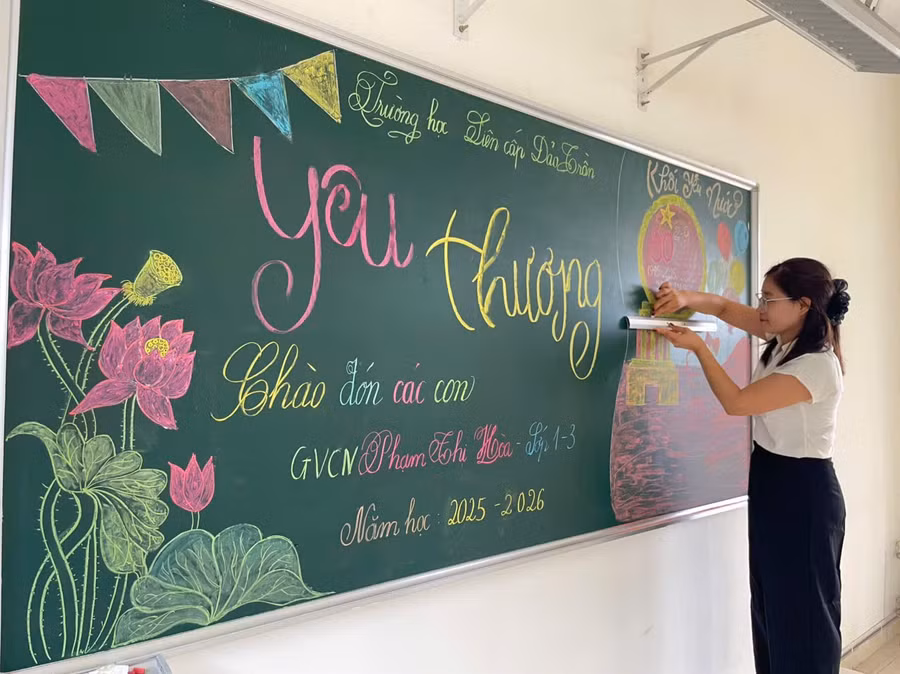 Trường học Liên cấp Đào Trần
Yêu
thương
Chào đón các con
GVCN Phạm Thị Hòa - Lớp 1-3
Năm học: 2025 - 2026
Khối Yêu Nước
80